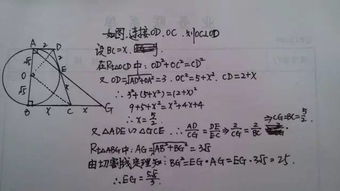 如图,连接OD、OC.则OC⊥OD
设BC=X.
在Rt△OCD中: OD²+OC²=CD²
又OD=√AD²+OA²=3. OC²=5+X². CD=2+X
∴3²+(5+X²)=(2+X)²
9+5+x²=X²+4X+4
∴X=5/2
⇒CG=BC=5/2.
又△ADE∽△GCE ∴AD/CG=DE/EC⇒2/CG=2/BC
Rt△ABG中: AG=√AB²+BG²=3√5
由切割线定理知: BG²=EG·AG=EG·3√5=25.
∴EG=5√5/3.
A 2 D
2
E
O
√5
X
B X C G